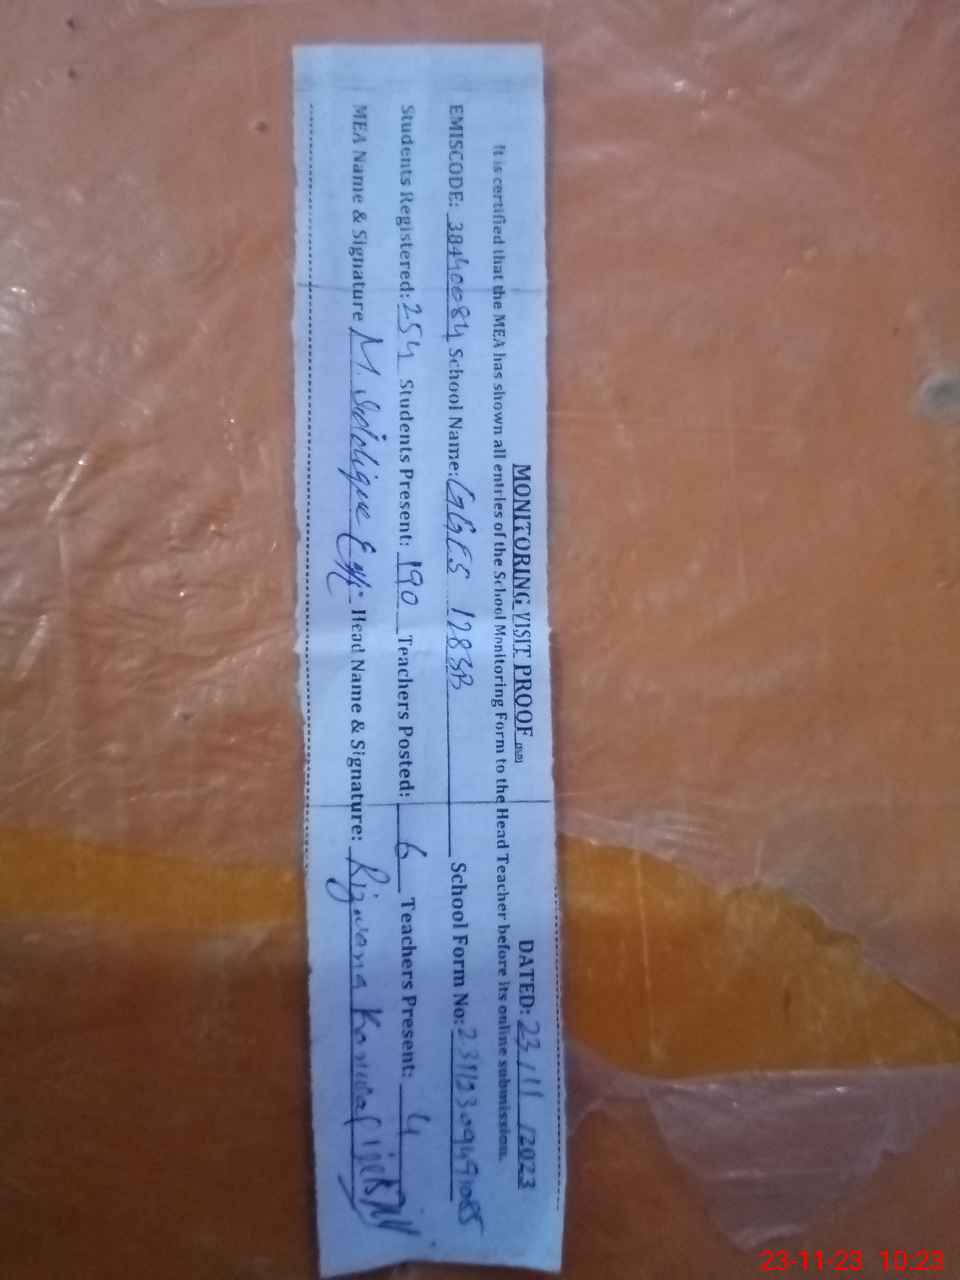 MONITORING VISIT PROOF DATED: 23/11/2023
It is certified that the MEA has shown all entries of the School Monitoring Form to the Head Teacher before its online submission.
EMISCODE: 38440084 School Name: GGES 128SB School Form No:
Students Registered: 254 Students Present: 190 Teachers Posted: 6 Teachers Present: 4
MEA Name & Signature M. Siddique Head Name & Signature: Rizwana Kanwal
23-11-23 10:23